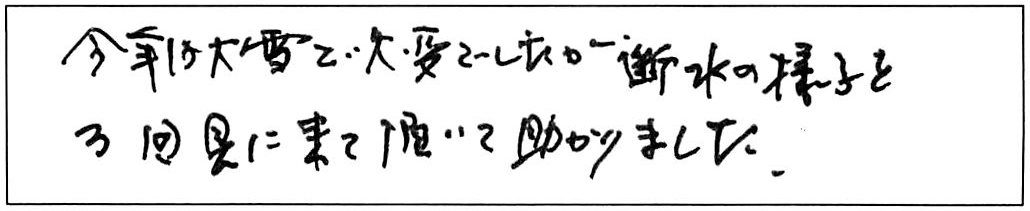 今年は大雪で大変でしたが断水の様子を
3回見に来て頂いて助かりました.